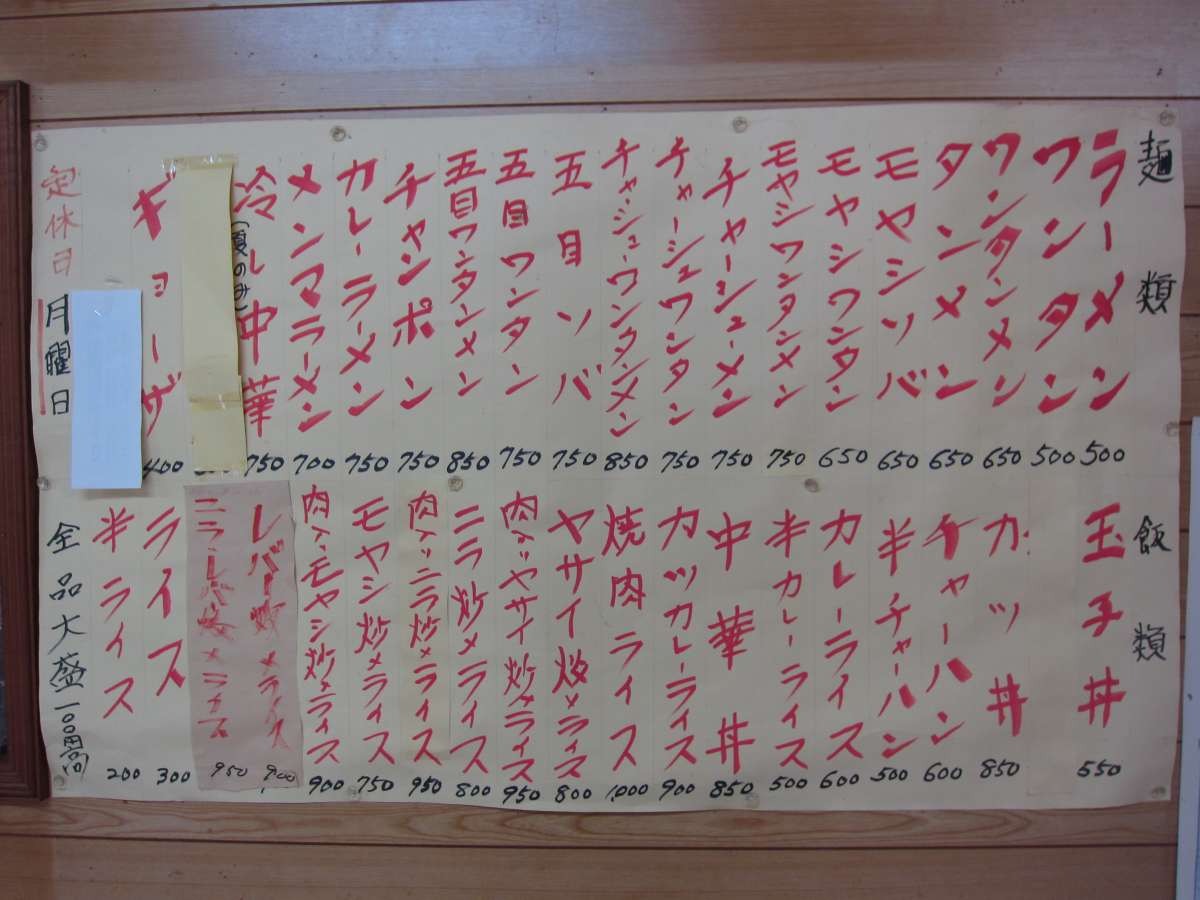 麺類
ラーメン 500
ワンタン 500
ワンタンメン 650
タンメン 650
モヤシソバ 650
モヤシワンタン 650
モヤシワンタンメン 750
チャーシューメン 750
チャーシュウワンタン 750
チャーシューワンタンメン 850
五目ソバ 750
五目ワンタン 750
五目ワンタンメン 850
チャンポン 750
カレーラーメン 750
メンマラーメン 700
冷し中華 750
(夏のみ)
ギョーザ 400
定休日 月曜日
飯類
玉子丼 550
カツ丼 850
チャーハン 600
半チャーハン 500
カレーライス 600
半カレーライス 500
中華丼 850
カツカレーライス 900
焼肉ライス 1,000
ヤサイ炒メライス 800
肉入ヤサイ炒メライス 950
ニラ炒メライス 800
肉入ニラ炒メライス 950
モヤシ炒メライス 750
肉入モヤシ炒メライス 900
レバー炒メライス 900
ニラレバ炒メライス 950
ライス 300
半ライス 200
全品大盛一〇〇円高